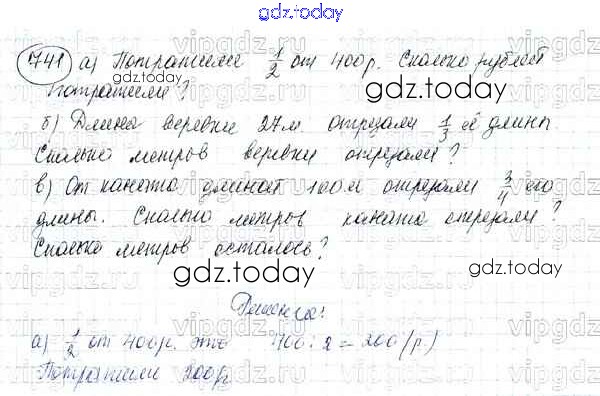 gdz.today
741 а) Потратили 1/2 от 400р. Сколько рублей
потратили?
gdz.today
gdz.today
б) Длина веревки 27м отрезали 1/3 её длины.
Сколько метров веревки отрезали?
в) От каната длиной 100м отрезали 3/4 его
длины. Сколько метров каната отрезали?
Сколько метров осталось?
gdz.today
gdz.today
Решение:
а) 1/2 от 400р. это 400:2=200(р.)
Потратили 200р
gdz.today